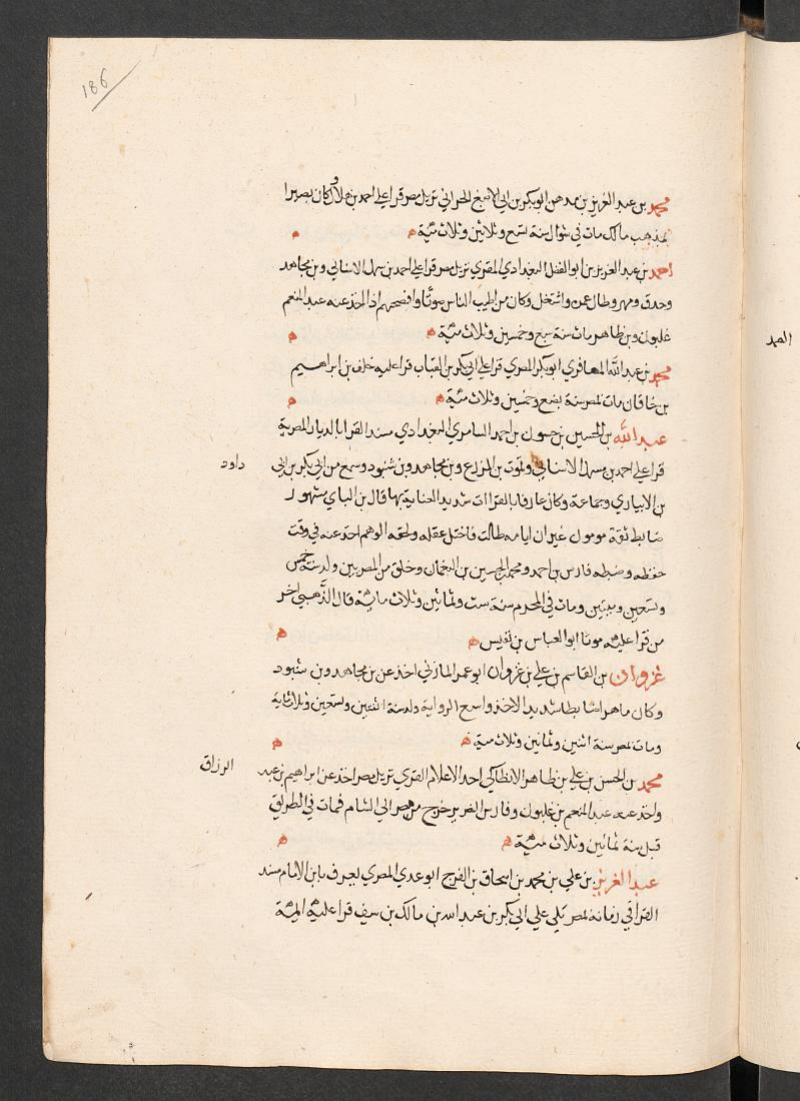 186
محمد بن عبد العزيز بن ابو بكر بن ابي الاصبغ الحراني نزيل مصر قرا علي احمد بن هلال وكان بصيرا
بمذهب مالك مات في شوال سنة تسع وثلاثين وثلاث مئة
احمد بن عبد العزيز بن ابو الفضل البغدادي المقري نزيل مصر قرا علي احمد بن سهل الاسناني وبن مجاهد
وحدق ومهر وطال عمره واشتغل وكان من اطيب الناس صوتا وافصحهم اداء اخذ عنه عبد المنعم
غلبون وبن طاهر مات سنة سبع وخمسين وثلاث مئة
محمد بن عبد الله المعافري ابو بكر المصري قرا علي ابي بكر بن القباب قرا عليه خلف بن ابراهيم
بن خاقان مات بمصر سنة بضع وخمسين وثلاث مئة
عبد الله بن الحسين بن حسون بن احمد السامري البغدادي مسند القرا بالديار المصرية
قرا علي احمد بن سهل الاسناني ويموت بن المزرع وبن مجاهد وبن شنبود وسمع من ابي بكر بن ابي داود
بن الانباري وجماعة وكان عارفا بالقراات شديد العناية بها قال بن الباي مشهور
ضابط ثقة مومول غيران ايامه طالت فاختل عقله ولحقه الوهم اخذ عنه في وقت
حفظه وضبطه فارس بن احمد ومحمد بن الحسين بن النعمان وخلق من المصريين ولد سنة خمس
وتسعين وميتين ومات في المحرم سنة ست وثمانين وثلاث ماية قال الذهبي اخر
من قرا عليه موتا ابو العباس بن نفيس
غزوان بن القاسم بن علي بن غزوان ابو عمر المازني اخذ عن بن مجاهد وبن شنبود
وكان ماهرا ضابطا شديد الاخذ واسع الرواية ولد سنة اثنتين وتسعين وثلاثماية
ومات بمصر سنة اثنين وثمانين وثلاث مية
محمد بن الحسن بن علي بن طاهر الانطاكي احد الاعلام المقري نزيل مصر اخذ عن ابراهيم بن عبد الرزاق
واخذ عنه عبد المنعم بن غلبون وفارس الضرير خرج من مصر الي الشام فمات في الطريق
قبل سنة ثمانين وثلاث مئة
عبد العزيز بن علي بن محمد بن اسحاق بن الفرج ابو عدي المصري يعرف بابن الامام مسند
القرا في زمانه بمصر تلي علي ابي بكر بن عبد الله بن مالك بن سيف قرا عليه ائمة